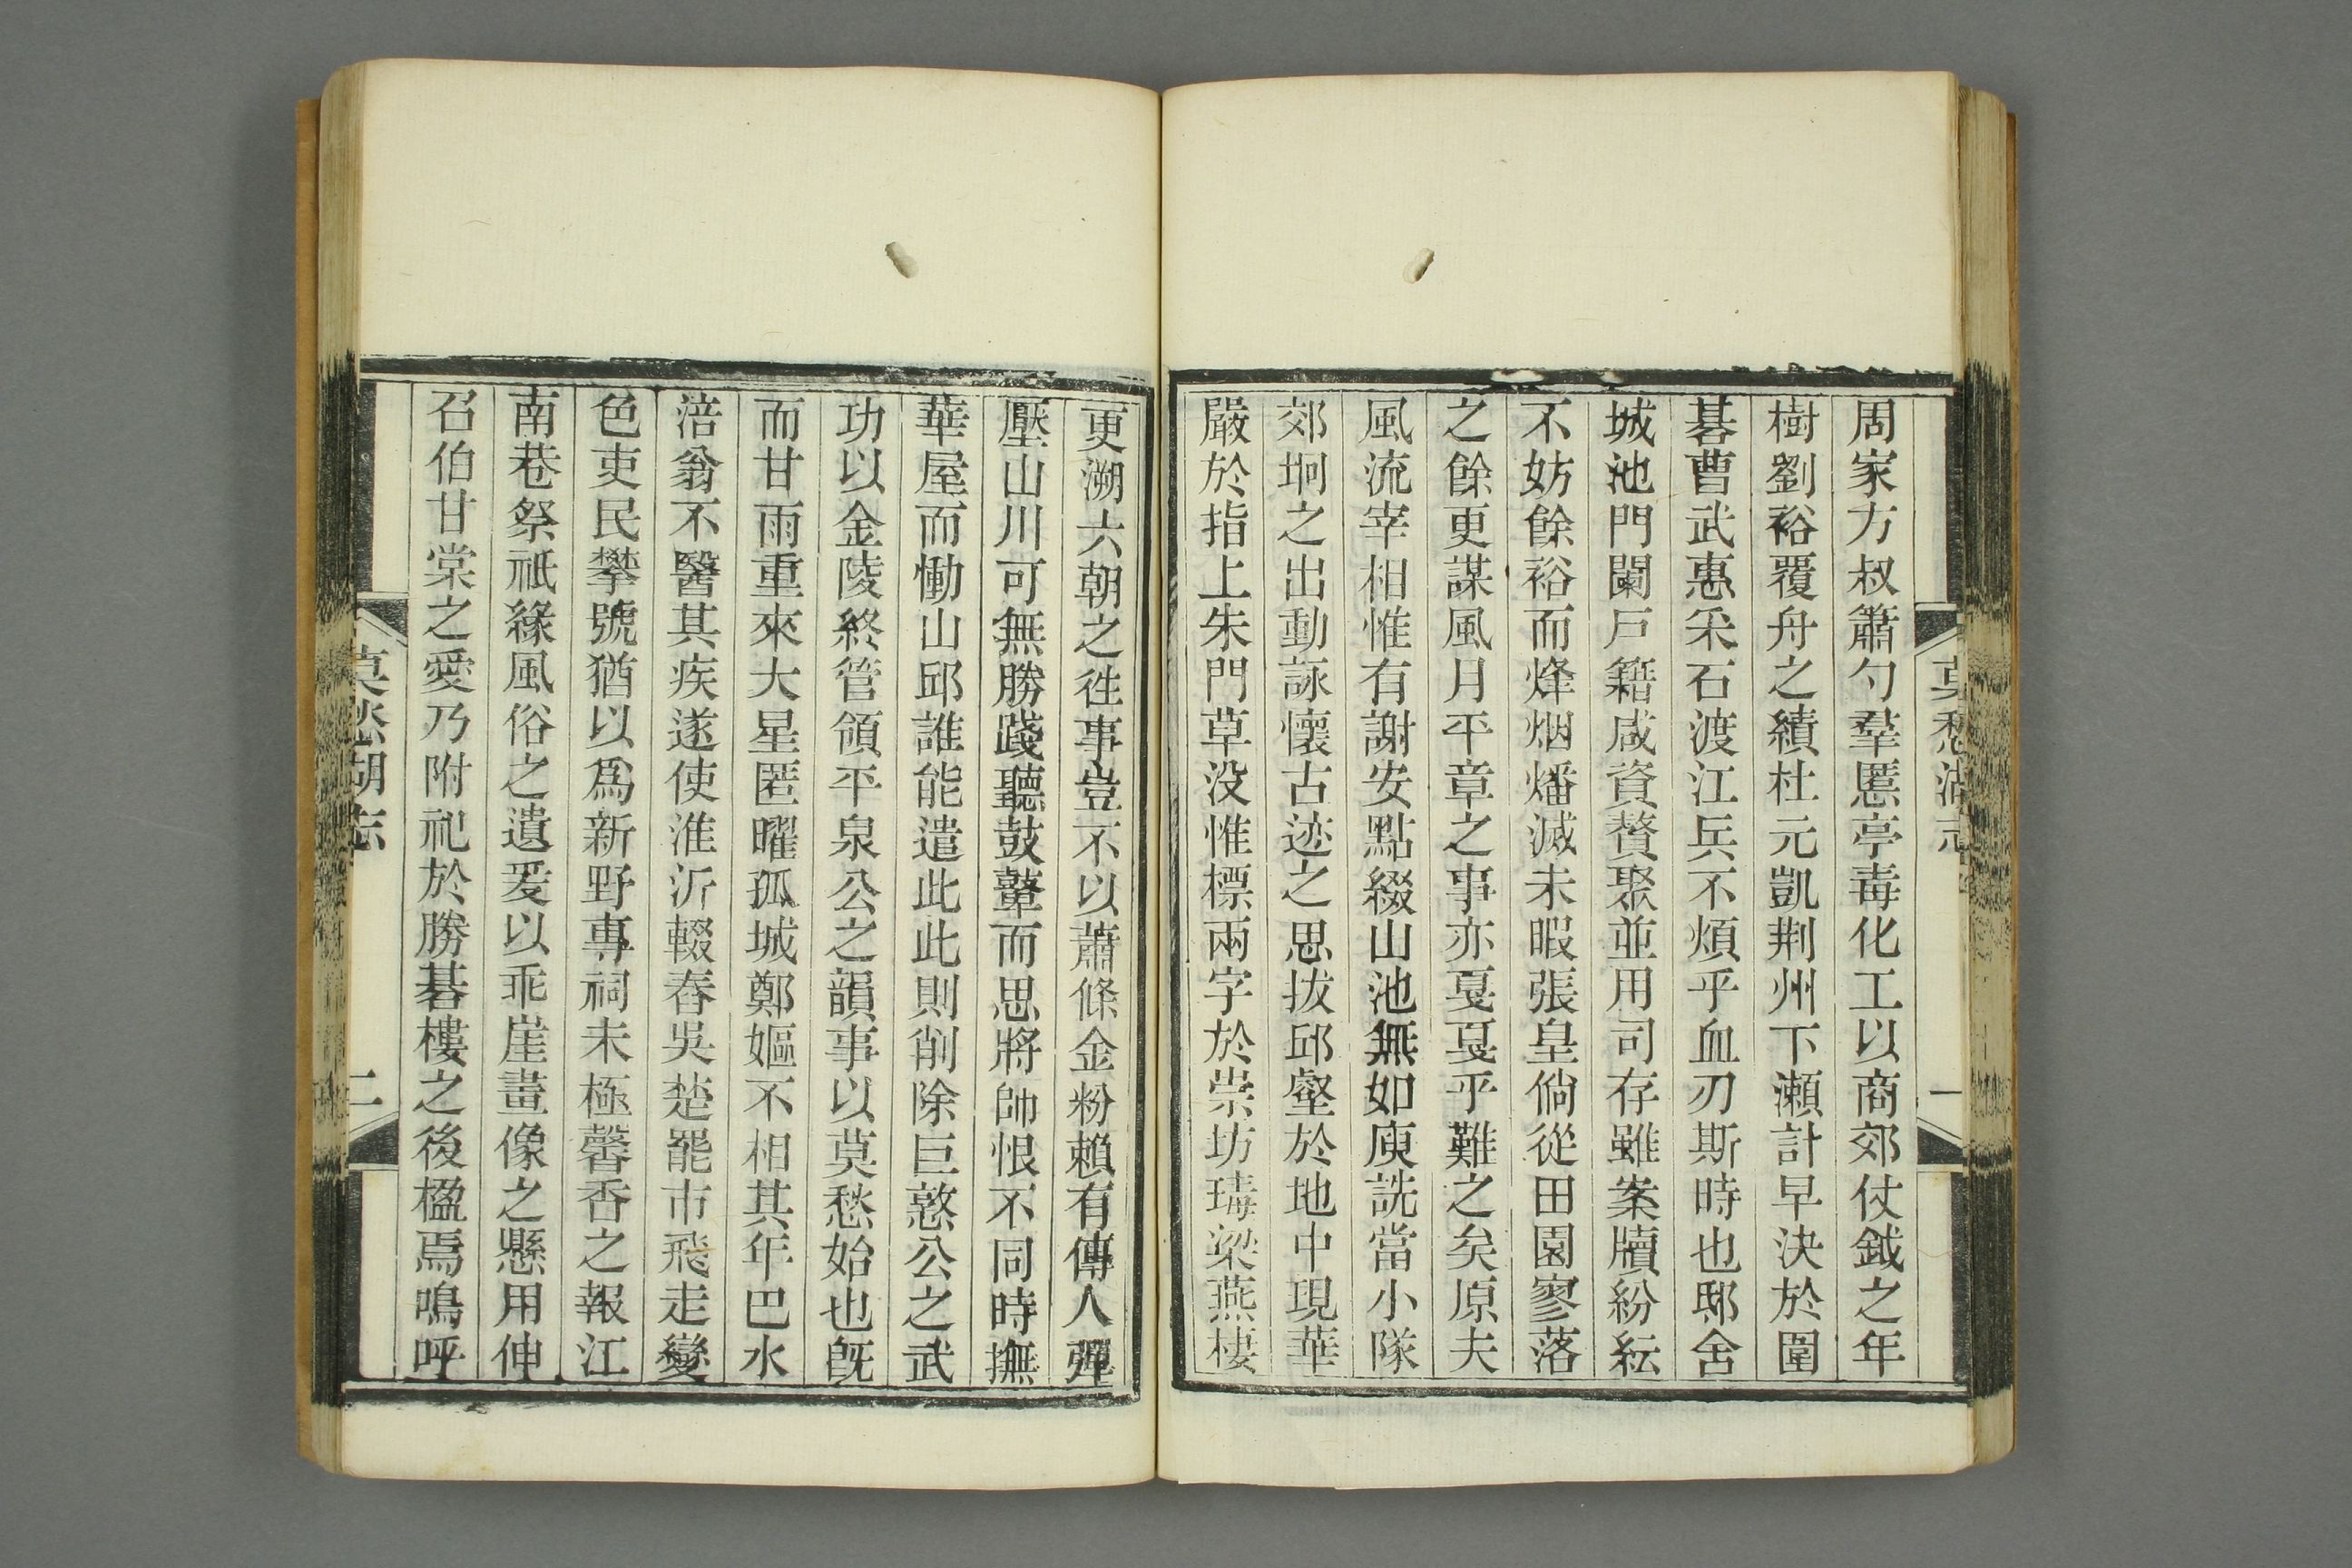 莫愁湖志
一
周家方叔簫勺羣慝亭毒化工以商郊仗鉞之年
樹劉裕覆舟之績杜元凱荆州下瀬計早決於圍
碁曹武惠采石渡江兵不煩乎血刃斯時也邸舍
城池門闌戸籍咸資贅聚並用司存雖案牘紛紜
不妨餘裕而烽烟燔滅未暇張皇倘從田園寥落
之餘更謀風月平章之事亦戛戛乎難之矣原夫
風流宰相惟有謝安點綴山池無如庾詵當小隊
郊坰之出動詠懷古迹之思拔邱壑於地中現華
嚴於指上朱門草没惟標兩字於崇坊瑇梁燕棲
更溯六朝之徃事豈不以蕭條金粉賴有傳人彈
壓山川可無勝踐聽鼓鼙而思將帥恨不同時撫
華屋而慟山邱誰能遣此此則削除巨憝公之武
功以金陵終管領平泉公之韻事以莫愁始也旣
而甘雨重來大星匿曜孤城鄭嫗不相其年巴水
涪翁不醫其疾遂使淮沂輟舂吳楚罷市飛走變
色吏民攀號猶以爲新野專祠未極馨香之報江
南巷祭祇緣風俗之遺爰以乖崖畫像之懸用伸
召伯甘棠之愛乃附祀於勝碁樓之後楹焉嗚呼
莫愁湖志
二